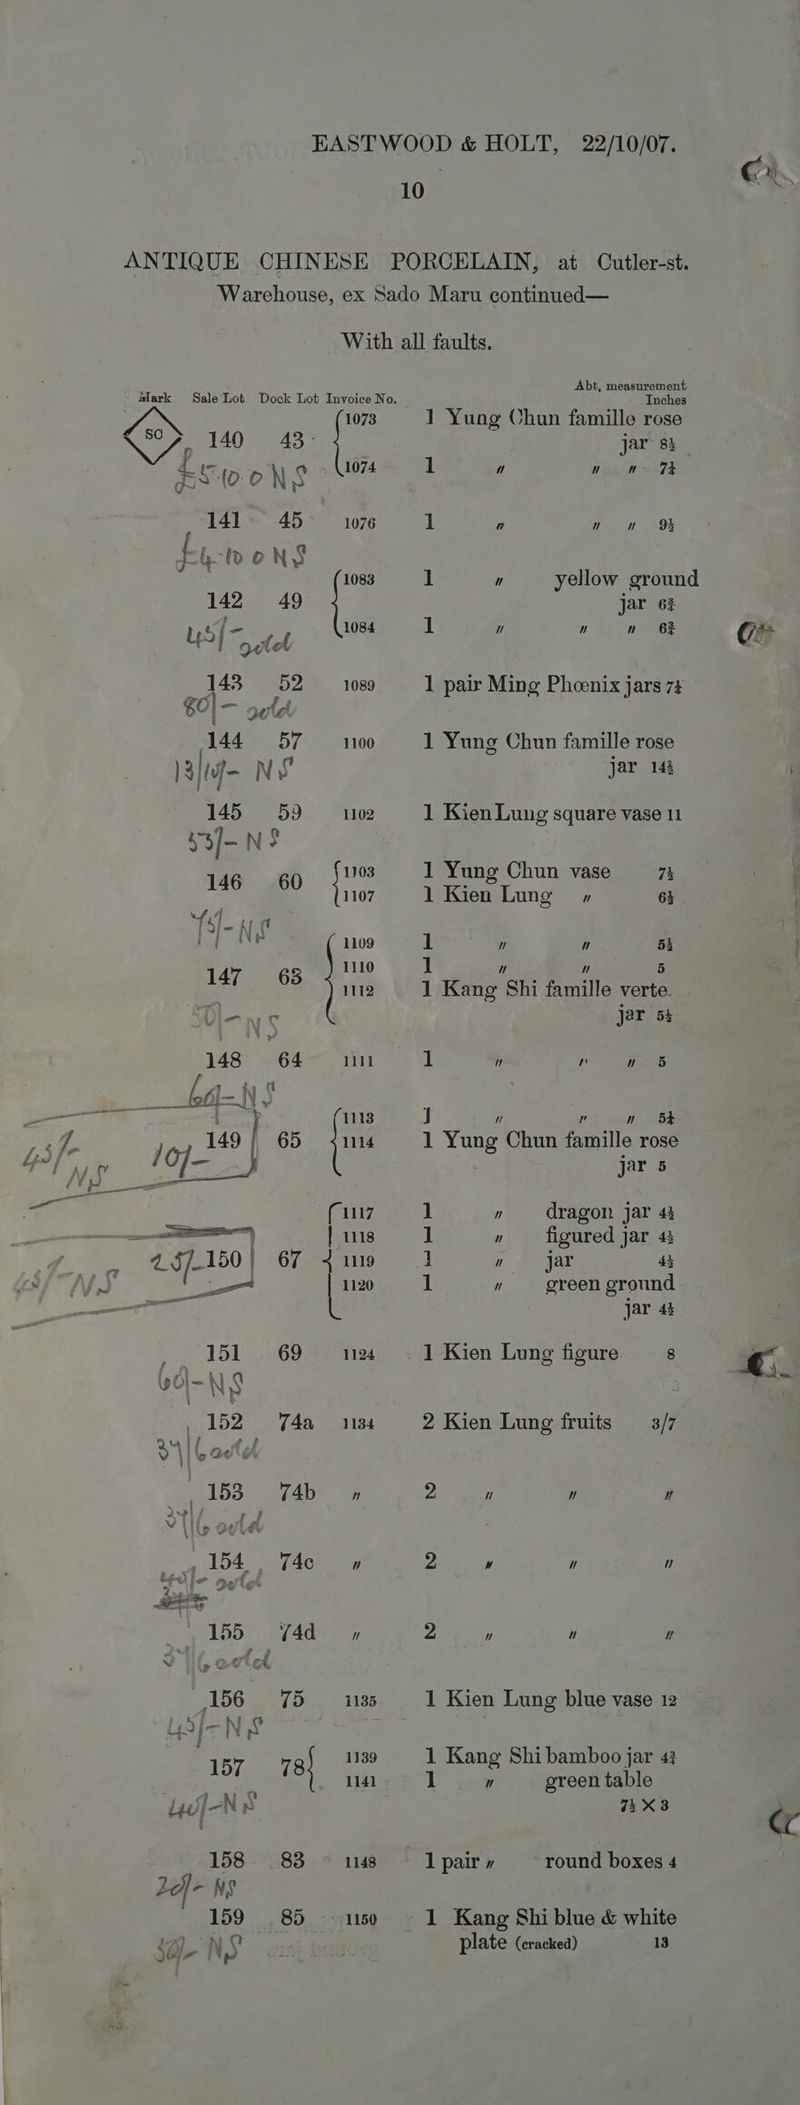 EASTWOOD & HOLT, 22/10/07.
10
ANTIQUE CHINESE PORCELAIN, at Cutler-st.
Warehouse, ex Sado Maru continued—
With all faults.
Abt, measurement
Mark Sale Lot Dock Lot Invoice No. Inches
SC 140 43 1073 1 Yung Chun famille rose
jar 8½
NS 1074 1 " " " 7½
141 45 1076 1 " " " 9½
NS
142 49 1083 1 " yellow ground
jar 6¾
45/- gold 1084 1 " " " 6¾
143 52 1089 1 pair Ming Phœnix jars 7¼
80/- gold
144 57 1100 1 Yung Chun famille rose
NS jar 14½
145 59 1102 1 Kien Lung square vase 11
NS
146 60 1103 1 Yung Chun vase 7½
1107 1 Kien Lung " 6½
NS
147 63 1109 1 " " 5½
1110 1 " " 5
1112 1 Kang Shi famille verte
NS jar 5½
148 64 1111 1 " " " 5
60/- NS
149 65 1113 1 " " " 5½
45/- NS 10/- 1114 1 Yung Chun famille rose
jar 5
150 67 1117 1 " dragon jar 4½
1118 1 " figured jar 4½
45/- NS 25/- 1119 1 " jar 4½
1120 1 " green ground
jar 4½
151 69 1124 1 Kien Lung figure 8
60/- NS
152 74a 1134 2 Kien Lung fruits 3/7
gold
153 74b " 2 " " "
gold
154 74c " 2 " " "
gold
155 74d " 2 " " "
gold
156 75 1135 1 Kien Lung blue vase 12
45/- NS
157 78 1139 1 Kang Shi bamboo jar 4¾
1141 1 " green table
40/- NS 7½ X 3
158 83 1148 1 pair " round boxes 4
20/- NS
159 85 1150 1 Kang Shi blue & white
50/- NS plate (cracked) 13